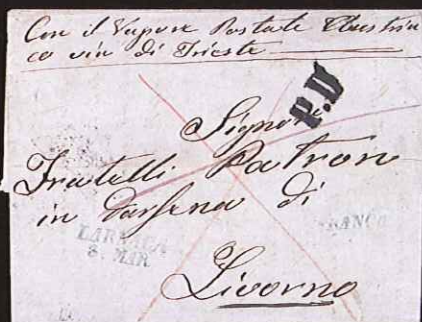 Con il Vapore Postale Austria
co via di Trieste
P.D
Signori
Fratelli Patron
in darsena di
LARNACA
8. MAR
FRANCO
Livorno